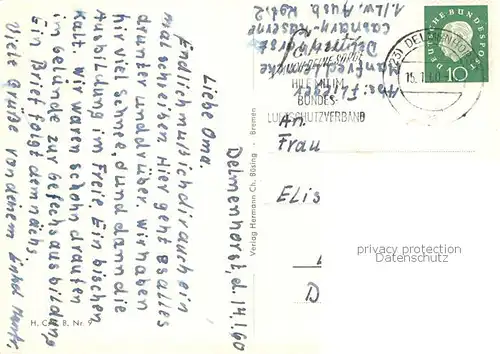 Delmenhorst, d. 14.1.60
Liebe Oma.
Endlich muß ich dir auch ein
mal schreiben. Hier geht es alles
drunter und drüber. Wir haben
hir viel Schnee und dann die
Ausbildung im Freie. Ein bischen
kalt. Wir waren schon draußen
im Gelände zur Gefechsausbildung
Ein Brief folgt demnächs.
Viele Grüße von deinem Enkel
H. C. B. Nr. 9
Verlag Hermann Ch. Büsing - Bremen
Abs: Flieger
Manfred
Delmenhorst
Kaserne
1/Lw. Ausb. Rgt. 2
HILF MIT IM
BUNDES-
LUFTSCHUTZVERBAND
(23) DELMENHORST
15.1.60
DEUTSCHE BUNDESPOST
10
An.
Frau
Elis
D
privacy protection
Datenschutz